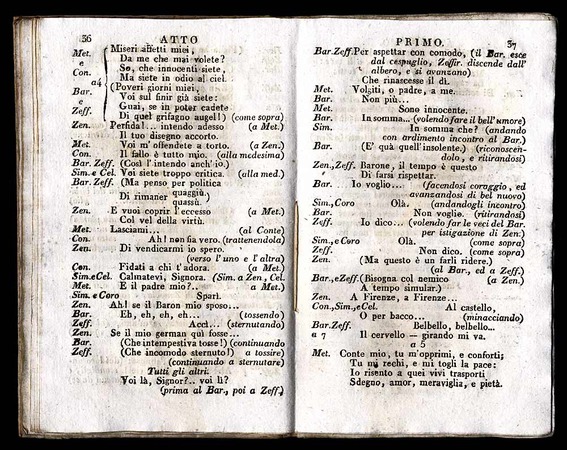 36 ATTO
Met. Miseri affetti miei,
e Da me che mai volete?
Con. Se, che innocenti siete,
a4 Ma siete in odio al ciel.
Bar. (Poveri giorni miei,
e Voi sul finir già siete:
Zeff. Guai, se in poter cadete
Di quel grifagno augel!) (come sopra)
Zen. Perfida!... intendo adesso (a Met.)
Il tuo disegno accorto.
Met. Voi m'offendete a torto. (a Zen.)
Con. Il fallo è tutto mio. (alla medesima)
Bar. Zeff. (Così l'intendo anch'io.)
Sim. e Cel. Voi siete troppo critica. (alla med.)
Bar. Zeff. (Ma penso per politica
quaggiù.
Di rimaner
quassù.
Zen. E vuoi coprir l'eccesso (a Met.)
Col vel della virtù.
Met. Lasciami... (al Conte)
Con. Ah! non fia vero. (trattenendola)
Zen. Di vendicarmi io spero.
(verso l'uno e l'altra)
Con. Fidati a chi t'adora. (a Met.)
Sim. e Cel. Calmatevi, Signora. (Sim. a Zen, Cel.
Met. E il padre mio?.. a Met.)
Sim. e Coro Sparì.
Zen. Ah! se il Baron mio sposo...
Bar. Eh, eh, eh, eh... (tossendo)
Zeff. Accì... (sternutando)
Zen. Se il mio german quì fosse...
Bar. (Che intempestiva tosse!) (continuando
Zeff. (Che incomodo sternuto!) a tossire)
(continuando a sternutare)
Tutti gli altri.
Voi là, Signor?.. voi lì?
(prima al Bar., poi a Zeff.)
PRIMO. 37
Bar. Zeff. Per aspettar con comodo, (il Bar. esce
dal cespuglio, Zeffir. discende dall'
albero, e si avanzano)
Che rinascesse il dì.
Met. Volgiti, o padre, a me.
Bar. Non più...
Met. Sono innocente.
Bar. In somma... (volendo fare il bell'umore)
Sim. In somma che? (andando
con ardimento incontro al Bar.)
Bar. (E' quà quell'insolente.) (riconoscen-
dolo, e ritirandosi)
Zen., Zeff. Barone, il tempo è questo
Di farsi rispettar.
Bar. Io voglio... (facendosi coraggio, ed
avanzandosi di bel nuovo)
Sim., Coro Olà. (andandogli incontro)
Bar. Non voglio. (ritirandosi)
Zeff. Io dico... (volendo far le veci del Bar.
per istigazione di Zen.)
Sim., e Coro Olà. (come sopra)
Zeff. Non dico. (come sopra)
Zen. (Ma questo è un farli ridere.)
(al Bar., ed a Zeff.)
Bar., e Zeff. (Bisogna col nemico (a Zen.)
A tempo simular.)
Zen. A Firenze, a Firenze...
Con., Sim., e Cel. Al castello,
O per bacco... (minacciando)
Bar. Zeff. Belbello, belbello...
a 7 Il cervello — girando mi va.
a 5
Met. Conte mio, tu m'opprimi, e conforti;
Tu mi rechi, e mi togli la pace:
Io risento a quei vivi trasporti
Sdegno, amor, meraviglia, e pietà.